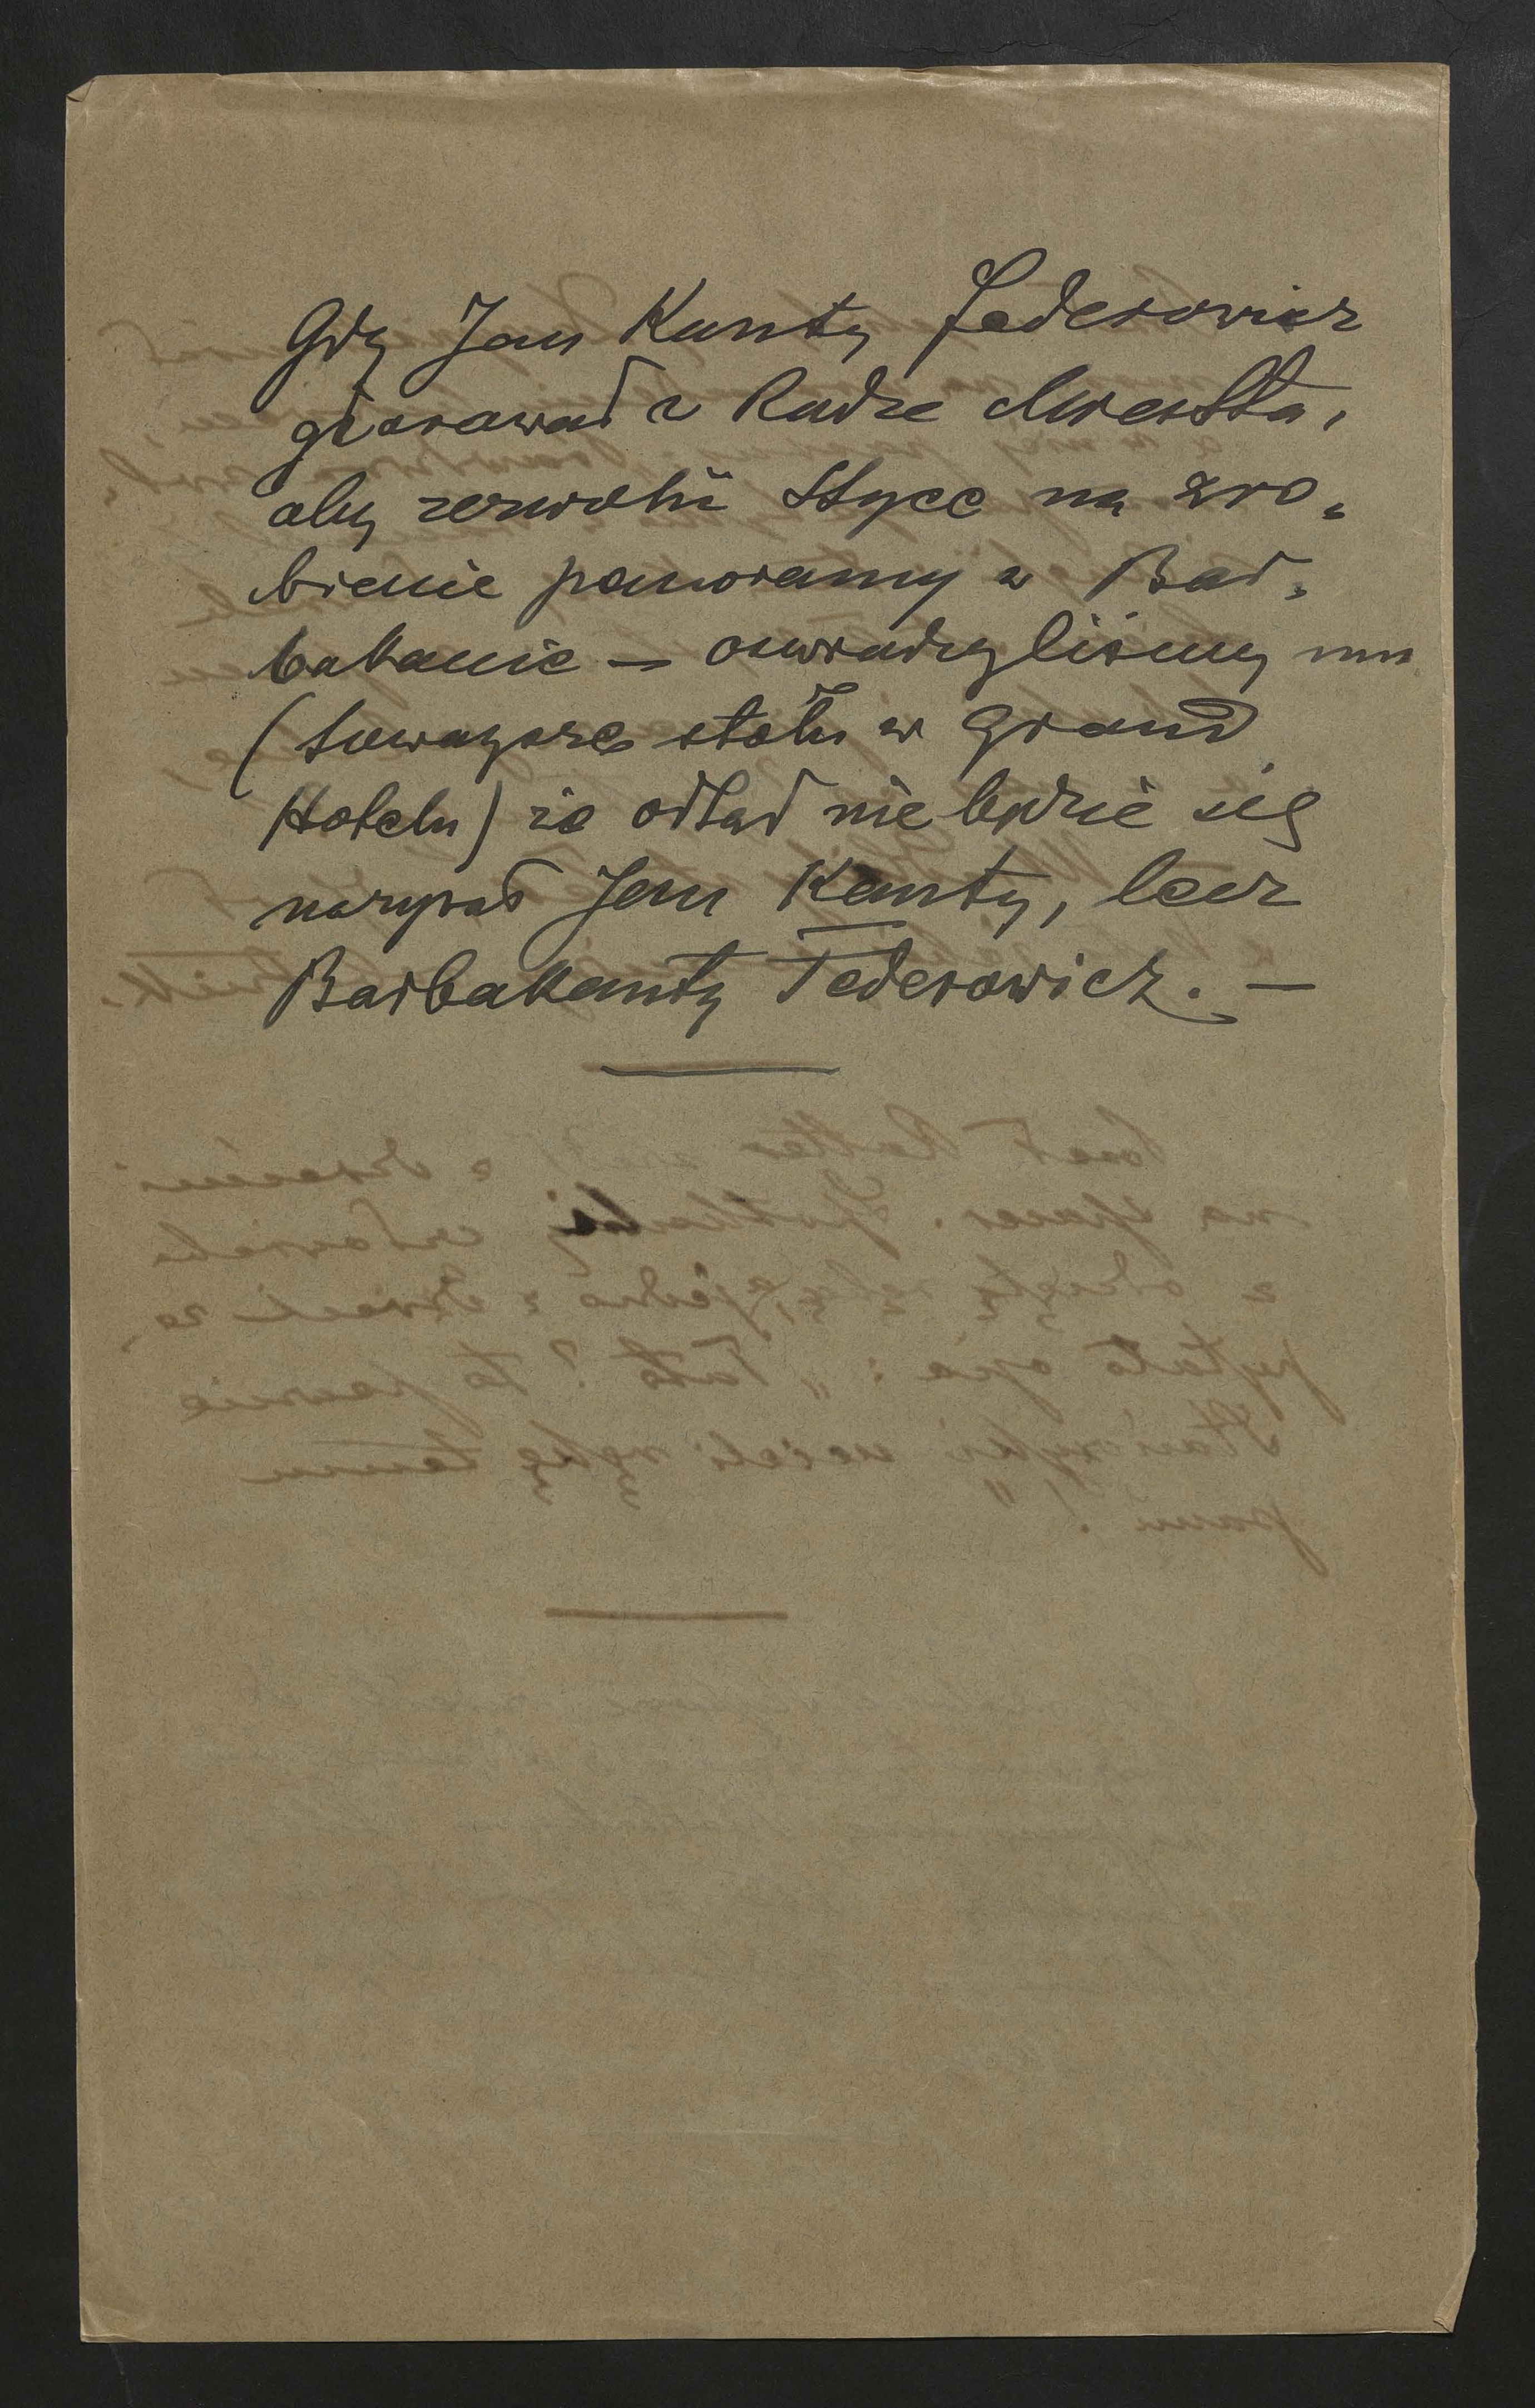 Gdy Jan Kanty Federowicz
głosował w Radze Miasta,
aby zezwolić Styce na zro-
bienie panoramy w Bar-
bakanie – oświadczyliśmy mu
(towarzysze stołu w Grand
Hotelu) że odtąd nie będzie się
nazywał Jan Kanty, lecz
Barbakanty Federowicz. –